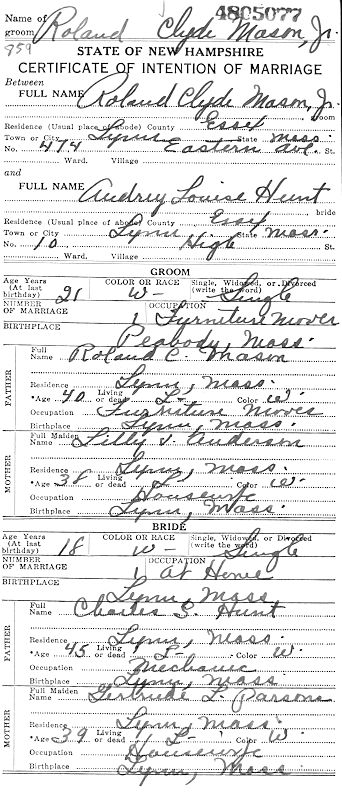 4805077
Name of groom Roland Clyde Mason, Jr.
859
STATE OF NEW HAMPSHIRE
CERTIFICATE OF INTENTION OF MARRIAGE
Between
FULL NAME Roland Clyde Mason, Jr.
groom
Residence (Usual place of abode) County Essex
Town or City Lynn State Mass.
No. 474 Eastern Ave. St.
Ward. Village
and
FULL NAME Audrey Louise Hunt
bride
Residence (Usual place of abode) County Essex
Town or City Lynn State Mass.
No. 10 High St.
Ward. Village
GROOM
Age Years (At last birthday) 21 COLOR OR RACE W- Single, Widowed, or Divorced (write the word) Single
NUMBER OF MARRIAGE 1 OCCUPATION Furniture Mover
BIRTHPLACE Peabody Mass.
FATHER
Full Name Roland C. Mason
Residence Lynn, Mass.
*Age 40 Living or dead L- Color W.
Occupation Furniture Mover
Birthplace Lynn, Mass.
MOTHER
Full Maiden Name Lilly S. Anderson
Residence Lynn, Mass.
*Age 38 Living or dead L- Color W.
Occupation Housewife
Birthplace Lynn, Mass.
BRIDE
Age Years (At last birthday) 18 COLOR OR RACE W- Single, Widowed, or Divorced (write the word) Single
NUMBER OF MARRIAGE 1 OCCUPATION At Home
BIRTHPLACE Lynn, Mass
FATHER
Full Name Charles S. Hunt
Residence Lynn, Mass.
*Age 45 Living or dead L- Color W.
Occupation Mechanic
Birthplace Lynn, Mass.
MOTHER
Full Maiden Name Gertrude L. Parsons
Residence Lynn, Mass.
*Age 39 Living or dead L- Color W.
Occupation Housewife
Birthplace Lynn, Mass.